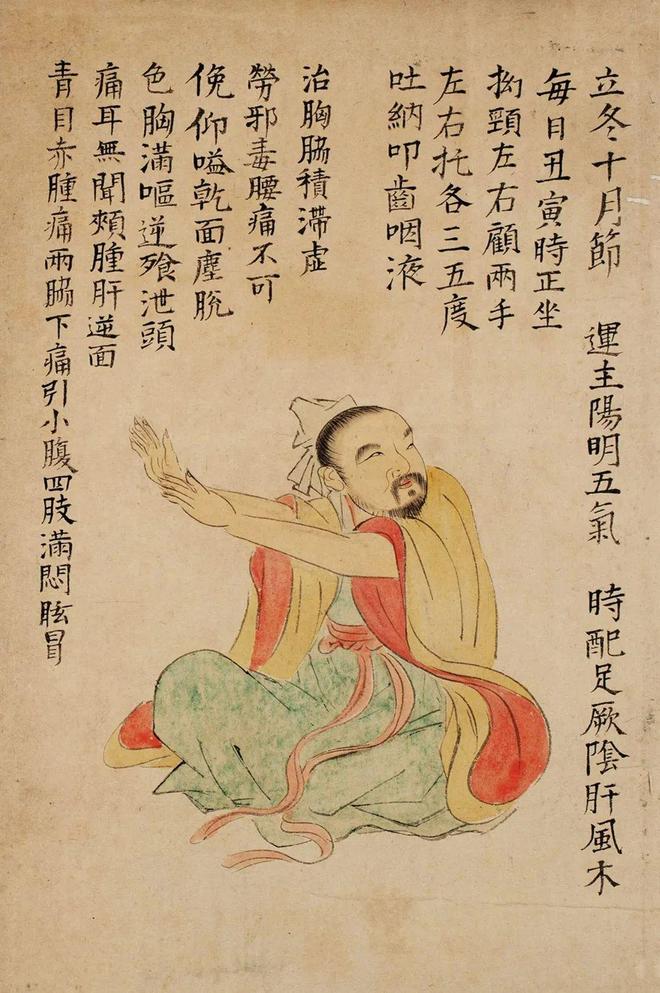 立冬十月節 運主陽明五氣 時配足厥陰肝風木
每日丑寅時正坐
拗頸左右顧兩手
左右托各三五度
吐納叩齒咽液
治胸脇積滯虛
勞邪毒腰痛不可
俛仰嗌乾面塵脫
色胸滿嘔逆飱泄頭
痛耳無聞頰腫肝逆面
青目赤腫痛兩脇下痛引小腹四肢滿悶眩冒